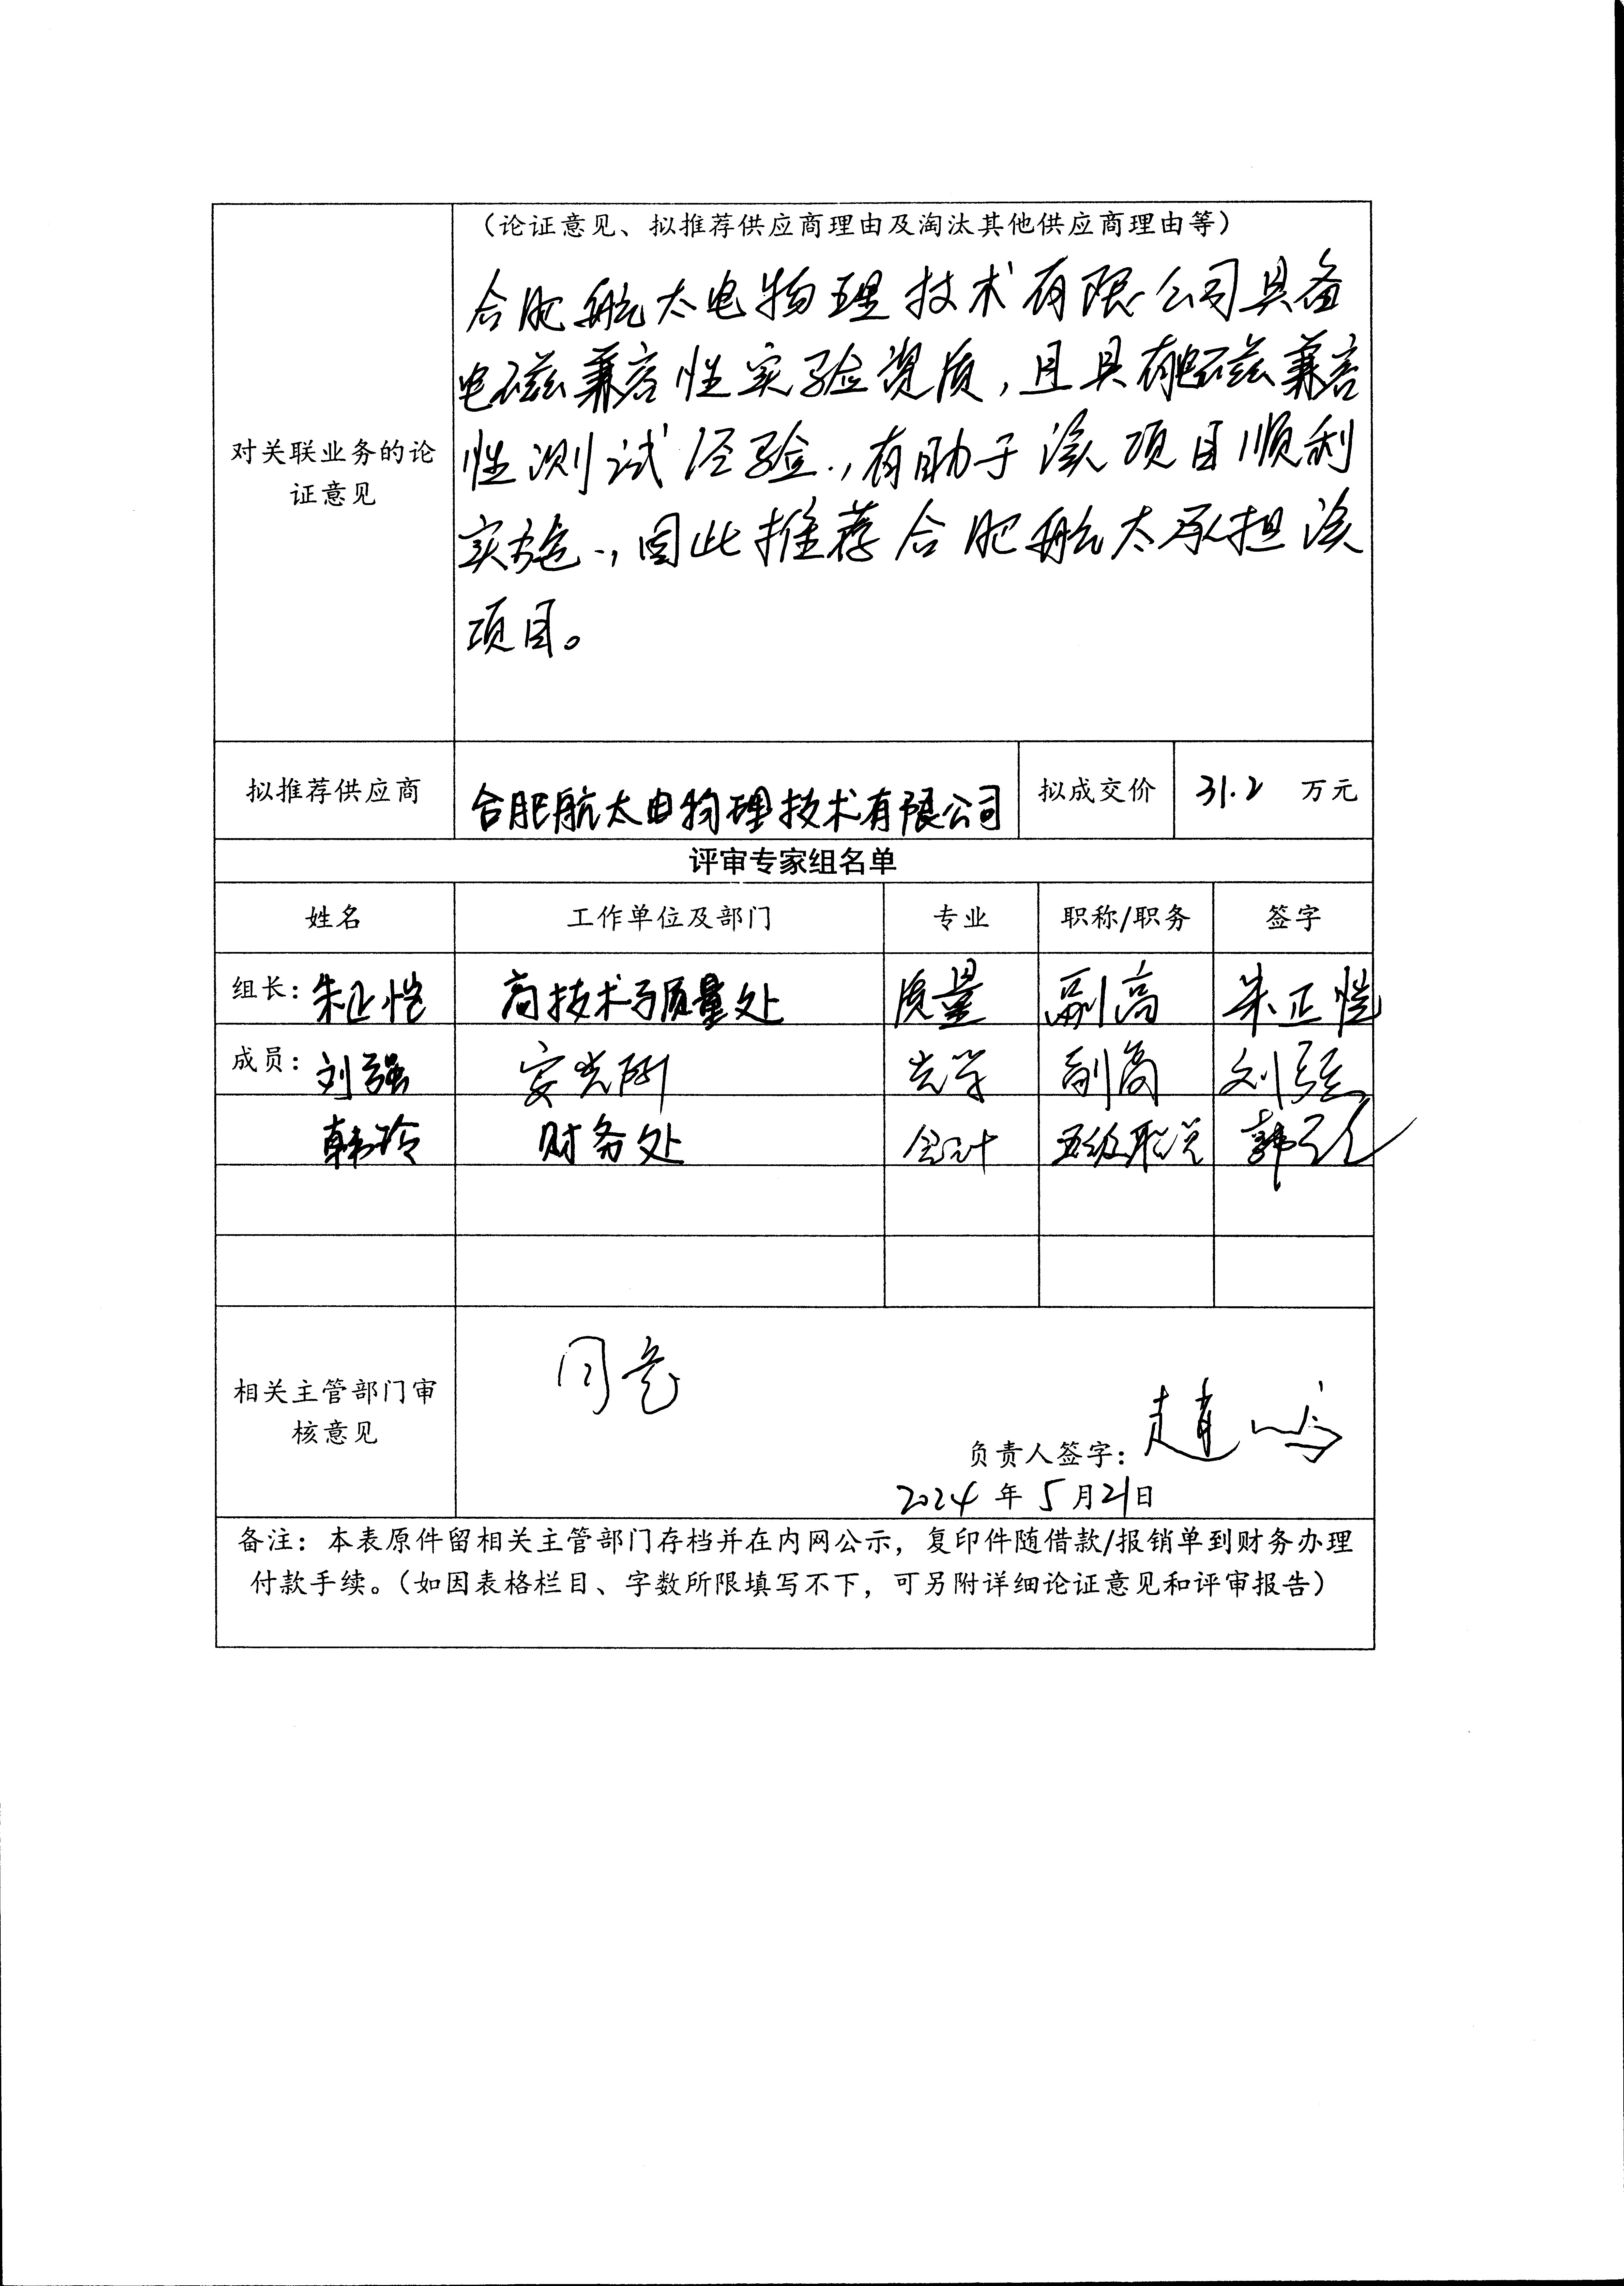 （论证意见、拟推荐供应商理由及淘汰其他供应商理由等）
合肥航太电物理技术有限公司具备
电磁兼容性实验资质，且具有电磁兼容
性测试经验，有助于该项目顺利
实施，因此推荐合肥航太承担该
项目。
对关联业务的论
证意见
拟推荐供应商 合肥航太电物理技术有限公司 拟成交价 31.2 万元
评审专家组名单
姓名 工作单位及部门 专业 职称/职务 签字
组长：朱正恺 高技术与质量处 质量 副高 朱正恺
成员：刘强 安光所 光学 副高 刘强
韩玲 财务处 会计 五级职员 韩玲
同意
相关主管部门审
核意见
负责人签字：赵
2024 年 5 月 21 日
备注：本表原件留相关主管部门存档并在内网公示，复印件随借款/报销单到财务办理
付款手续。（如因表格栏目、字数所限填写不下，可另附详细论证意见和评审报告）